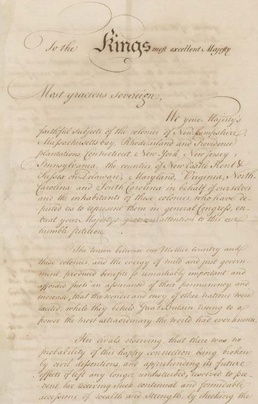 To the Kings most excellent Majesty
Most gracious Sovereign,
We your Majesty's
faithful subjects of the colonies of New Hampshire,
Massachusetts bay, Rhode island and Providence
plantations, Connecticut, New York, New Jersey,
Pennsylvania, the counties of New Castle, Kent &
Sussex on Delaware, Maryland, Virginia, North
Carolina and South Carolina in behalf of ourselves
and the inhabitants of these colonies, who have de-
puted us to represent them in general Congress, en-
treat your Majesty's gracious attention to this our
humble petition.
The union between our Mother Country and
these colonies, and the energy of mild and just govern-
ment produced benefits so remarkably important and
afforded such an assurance of their permanency and
increase, that the wonder and envy of other nations were
excited, while they beheld Great Britain rising to a
power the most extraordinary the world had ever known.
Her rivals observing, that there was no
probability of this happy connection being broken
by civil dissentions, and apprehending its future
effects if left any longer undisturbed, resolved to pre-
vent her receiving such continual and formidable
accessions of wealth and strength, by checking the